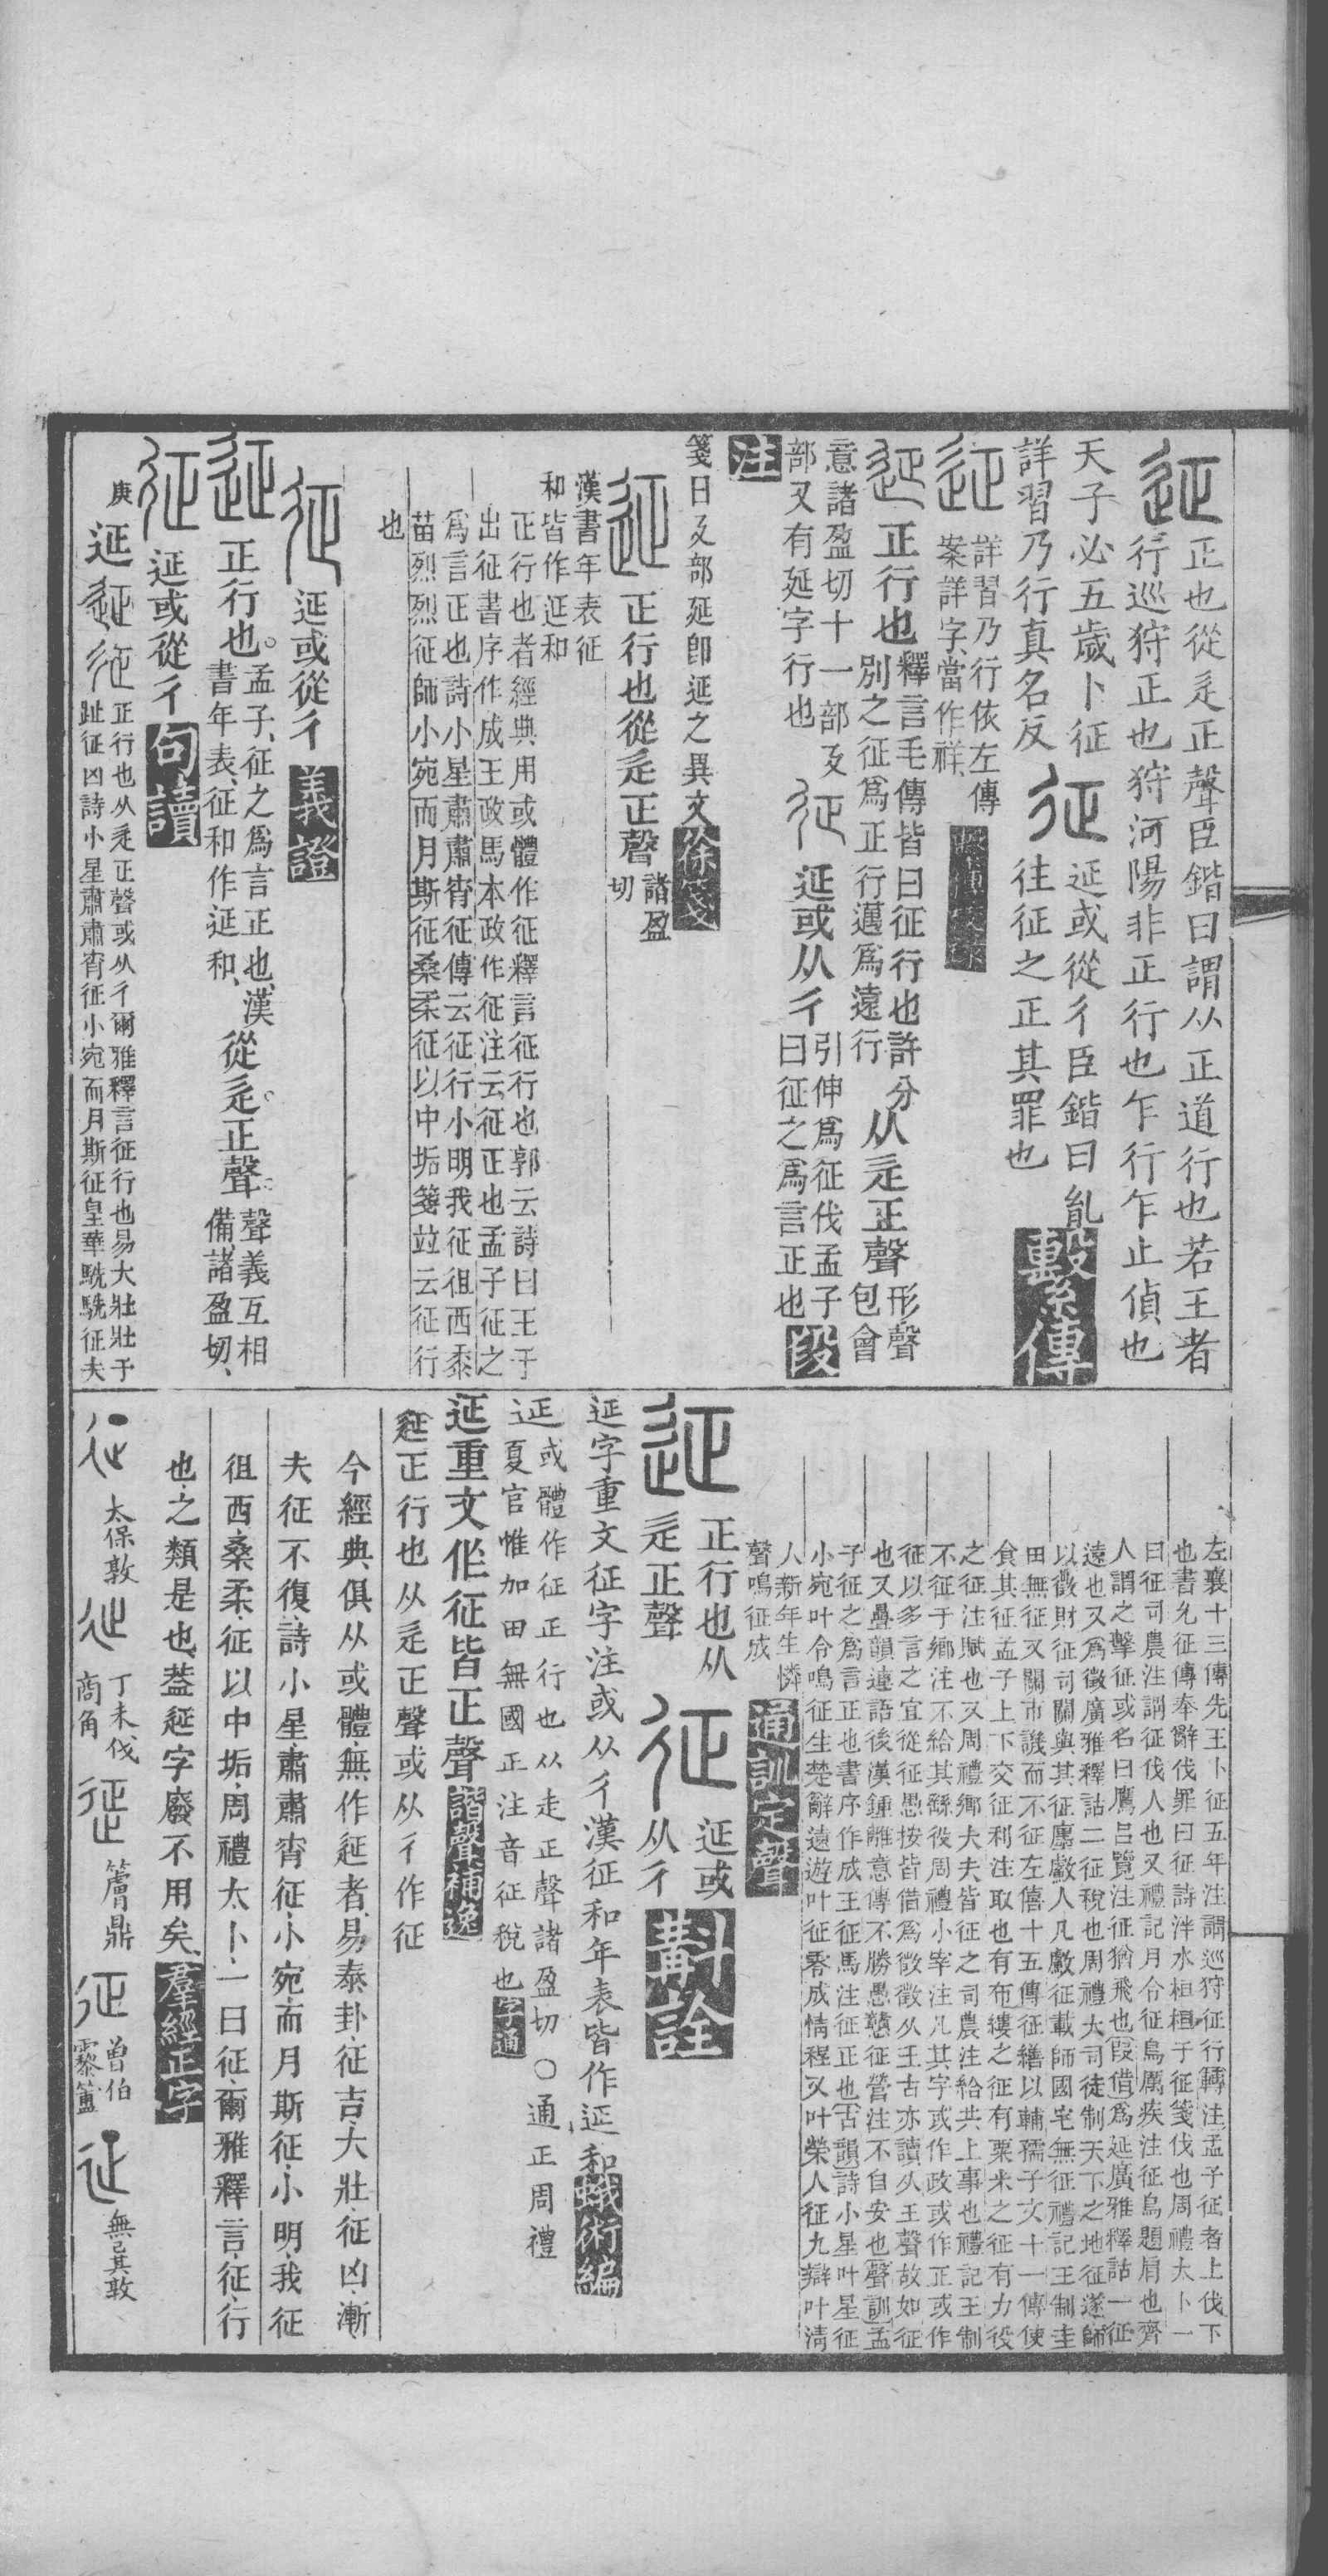 延正也從辵正聲臣鍇曰謂从正道行也若王者
行巡狩正也狩河陽非正行也乍行乍止偵也
天子必五歲卜征
詳習乃行真名反
征延或從彳臣鍇曰亂
往征之正其罪也
繫傳
延詳習乃行依左傳
案詳字當作祥
延正行也釋言毛傳皆曰征行也許分
別之征爲正行邁爲遠行
从辵正聲形聲
包會
意諸盈切十一部廴
部又有延字行也
征延或从彳引伸爲征伐孟子
曰征之爲言正也段
注
箋曰廴部延卽延之異文徐箋
延正行也從辵正聲諸盈
切
漢書年表征
和皆作延和
正行也者經典用或體作征釋言征行也郭云詩曰王于
出征書序作成王政馬本政作征注云征正也孟子征之
爲言正也詩小星肅肅宵征傳云征行小明我征徂西黍
苗烈烈征師小宛而月斯征桑柔征以中垢箋竝云征行
也
征延或從彳義證
延正行也孟子征之爲言正也漢
書年表征和作延和
從辵正聲聲義互相
備諸盈切
征延或從彳句讀
庚
延延征正行也从辵正聲或从彳爾雅釋言征行也易大壯壯于
趾征凶詩小星肅肅宵征小宛而月斯征皇華駪駪征夫
左襄十三傳先王卜征五年注謂巡狩征行轉注孟子征者上伐下
也書允征傳奉辭伐罪曰征詩泮水桓桓于征箋伐也周禮大卜一
曰征司農注謂征伐人也又禮記月令征鳥厲疾注征鳥題肩也齊
人謂之擊征或名曰鷹呂覽注征猶飛也假借爲延廣雅釋詁一征
遠也又爲徵廣雅釋詁二征稅也周禮大司徒制天下之地征遂師
以徵財征司關與其征廛歔人凡歔征載師國宅無征禮記王制圭
田無征又關市譏而不征左僖十五傳征繕以輔孺子文十一傳使
食其征孟子上下交征利注取也有布縷之征有粟米之征有力役
之征注賦也又周禮鄉大夫皆征之司農注給共上事也禮記王制
不征于鄉注不給其繇役周禮小宰注凡其字或作政或作正或作
征以多言之宜從征愚按皆借爲徵徵从王古亦讀从王聲故如征
也又疊韻連語後漢鍾離意傳不勝愚戇征營注不自安也聲訓孟
子征之爲言正也書序作成王征馬注征正也古韻詩小星叶星征
小宛叶令鳴征生楚辭遠遊叶征零成情程又叶榮人征九辯叶清
人新年生憐
聲鳴征成
通訓定聲
延正行也从
辵正聲
征延或
从彳
斠詮
延字重文征字注或从彳漢征和年表皆作延和蛾術編
延或體作征正行也从走正聲諸盈切〇通正周禮
夏官惟加田無國正注音征稅也字通
延重文作征皆正聲諧聲補逸
延正行也从辵正聲或从彳作征
今經典俱从或體無作延者易泰卦征吉大壯征凶漸
夫征不復詩小星肅肅宵征小宛而月斯征小明我征
徂西桑柔征以中垢周禮太卜一曰征爾雅釋言征行
也之類是也蓋延字廢不用矣羣經正字
太保敦
丁未伐
商角
膚鼎
曾伯
霥簠
無㠱敦